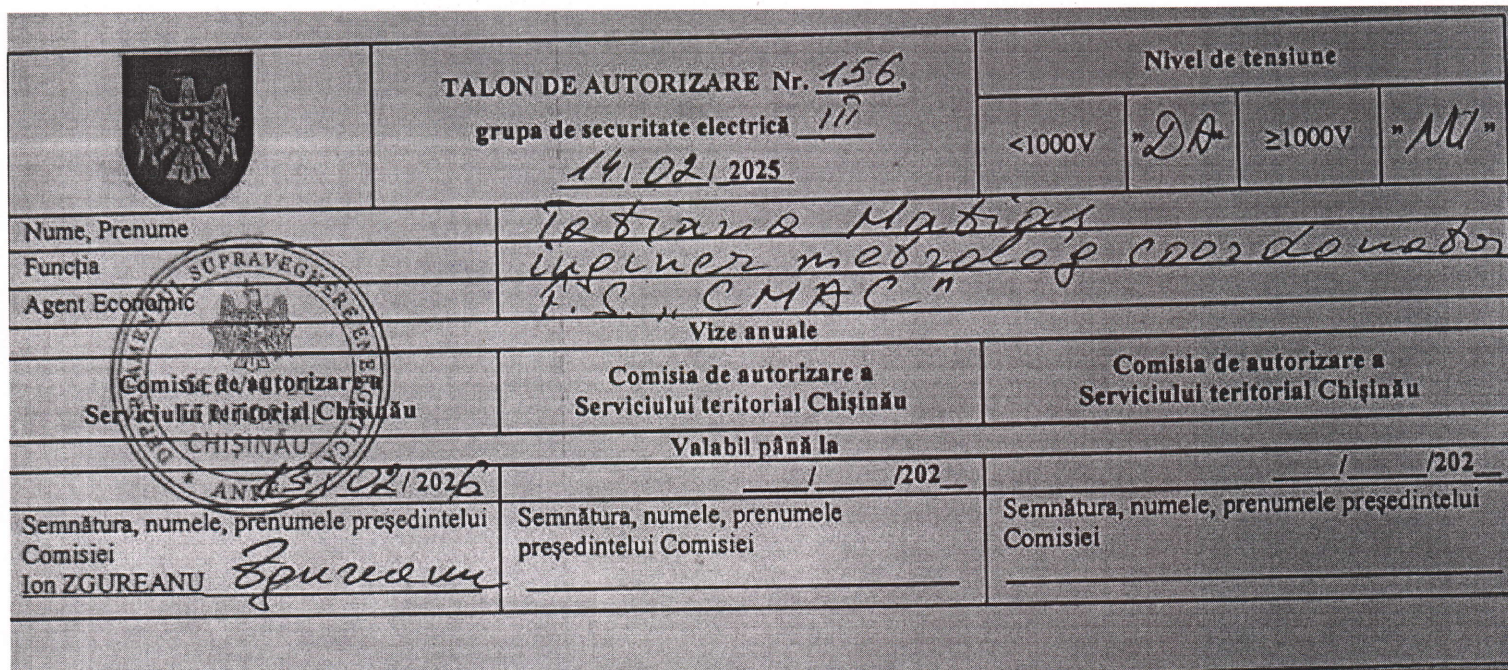 TALON DE AUTORIZARE Nr. 156,
grupa de securitate electrică III
14 / 02 / 2025
Nivel de tensiune
<1000V "DA" ≥1000V "NU"
Nume, Prenume Tatiana Matiaș
Funcția inginer metrolog coordonator
Agent Economic Î.S. „CMAC"
Vize anuale
Comisia de autorizare a
Serviciului teritorial Chișinău
Comisia de autorizare a
Serviciului teritorial Chișinău
Comisia de autorizare a
Serviciului teritorial Chișinău
DEPARTAMENT SUPRAVEGHERE ENERGETICĂ
SERVICIUL
TERITORIAL
CHIȘINĂU
* ANRE *
Valabil până la
13 / 02 / 2026
___/___/202__
___/___/202__
Semnătura, numele, prenumele președintelui
Comisiei
Ion ZGUREANU Zgureanu
Semnătura, numele, prenumele
președintelui Comisiei
Semnătura, numele, prenumele președintelui
Comisiei